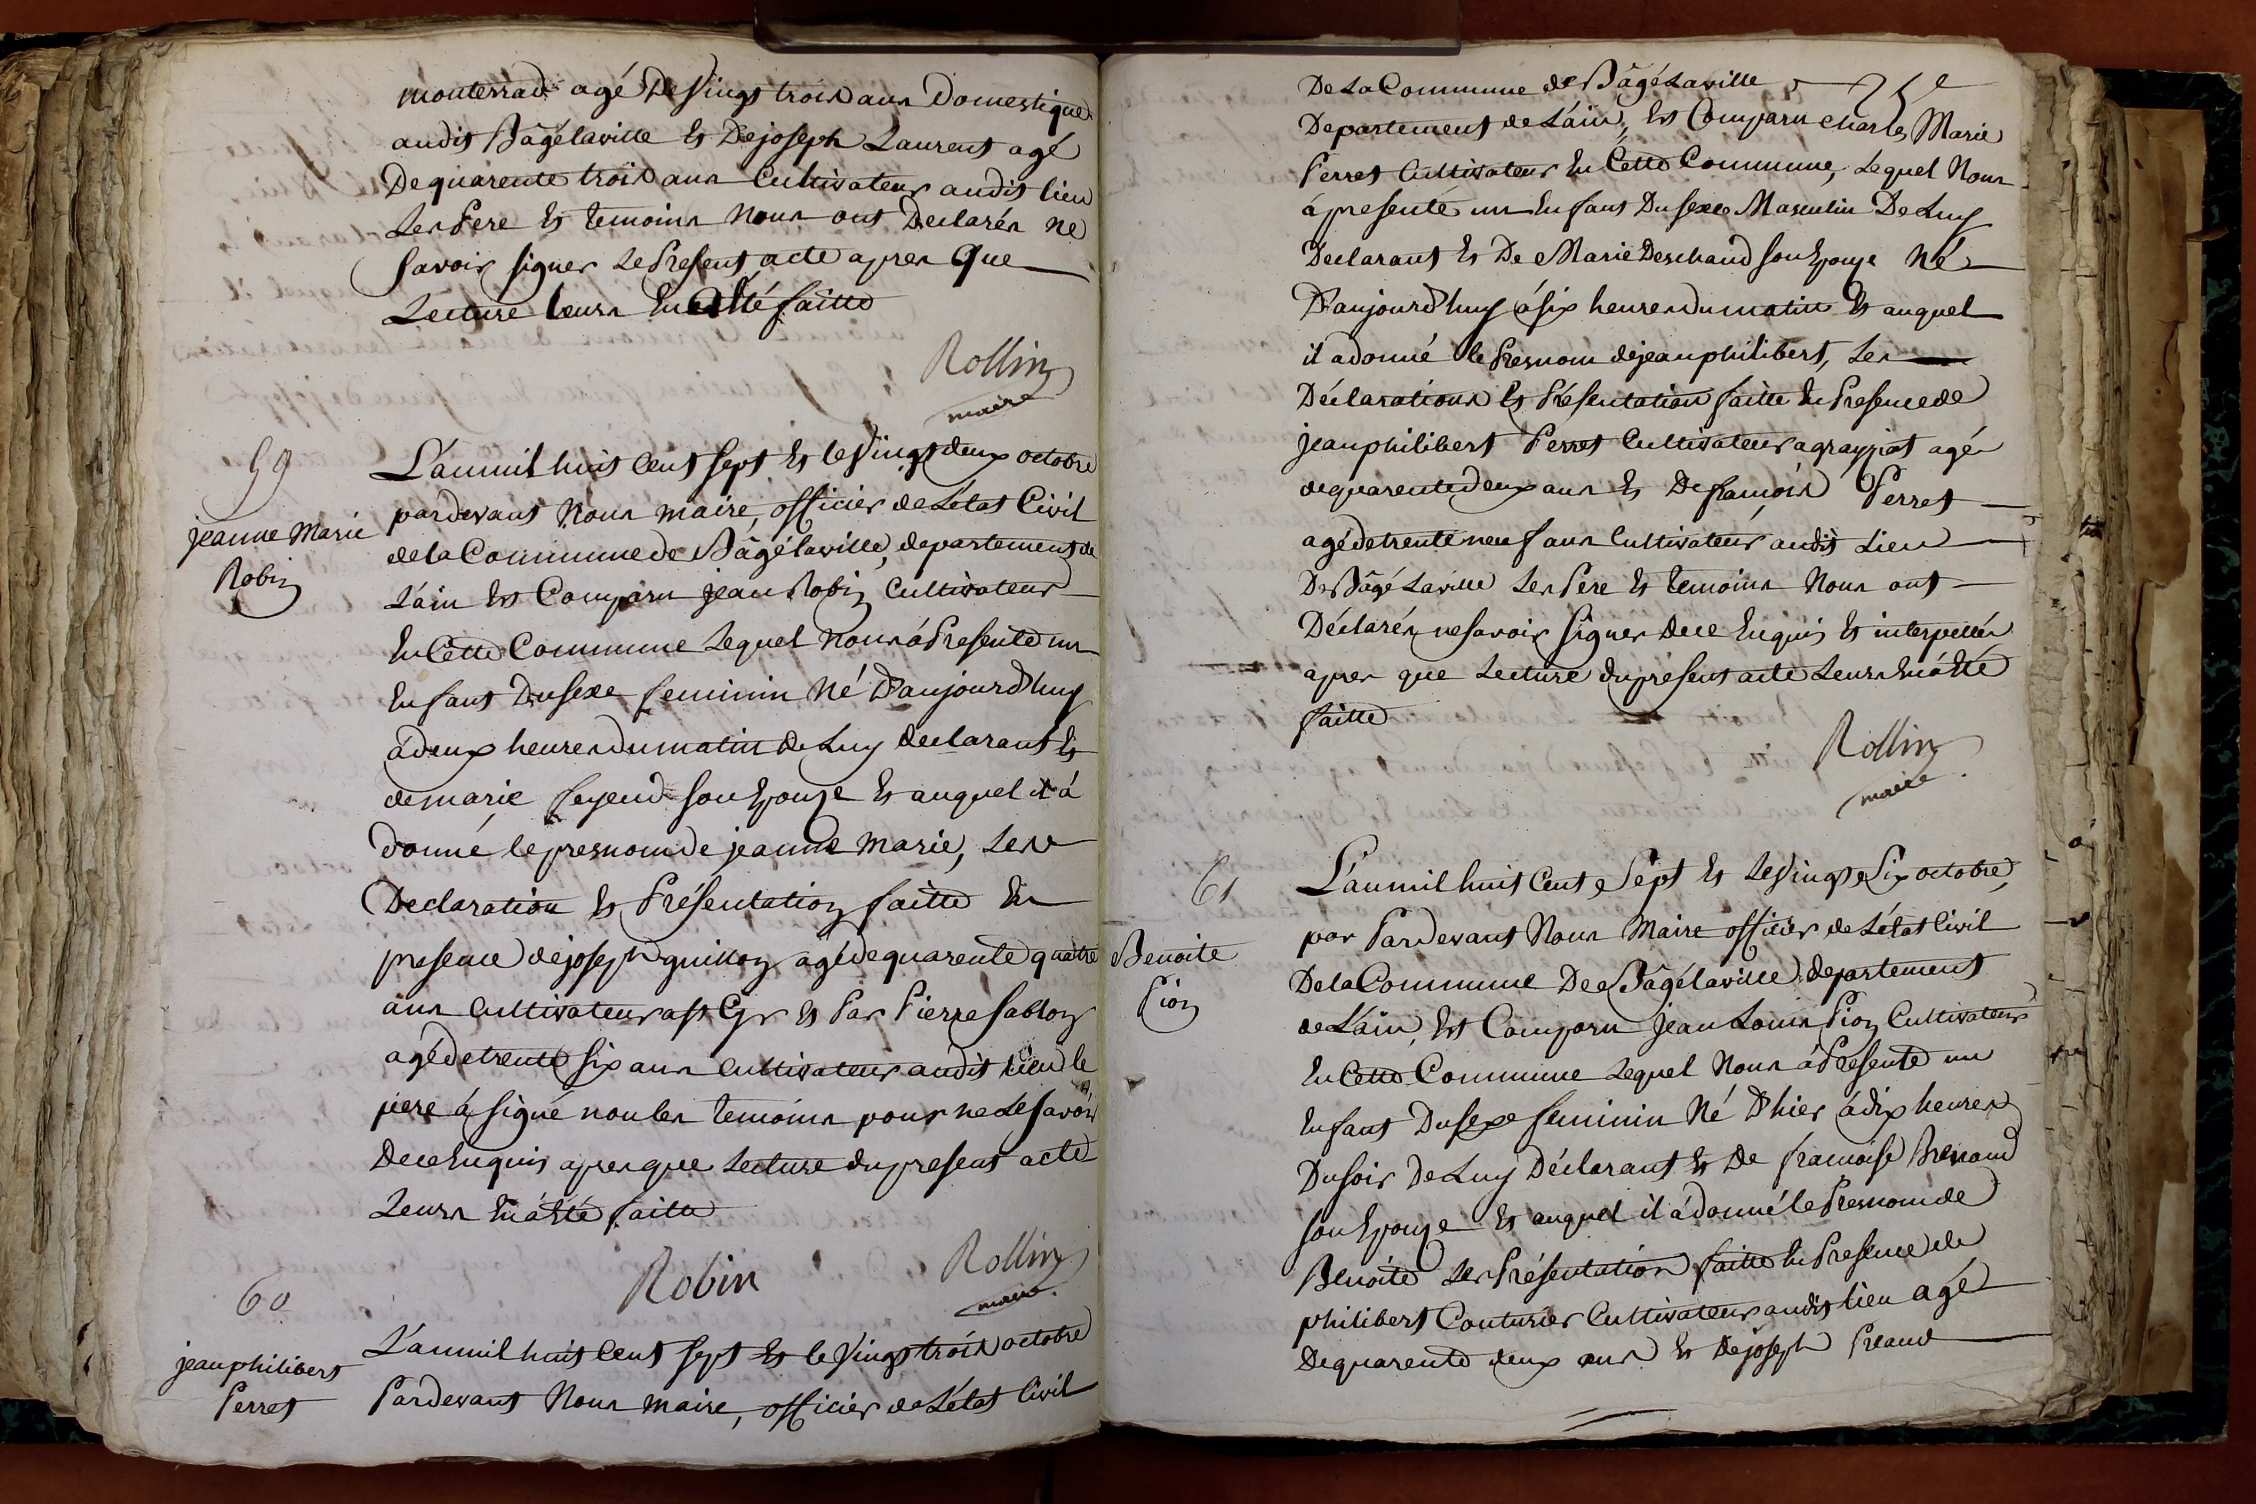 monterrad agé De Vingt trois ans Domestique
audit Bâgélaville Et De joseph Laurent agé
De quarente trois ans Cultivateur audit lieu
Les Pere Et temoins Nous ont Declarés ne
savoir signer Le Present acte apres que
Lecture leurs En a Eté faitte
Rollin
maire
59
jeanne Marie
Robin
L'an mil huit Cent sept Et le Vingt deux octobre
pardevant Nous maire, officier de L'état Civil
de la Commune de Bâgélaville, departement de
L'ain Est Comparu jean Robin Cultivateur
En Cette Commune Lequel Nous á Presenté un
Enfant Du sexe feminin Né D'aujourd'huy
á deux heures du matin de Luy declarant Et
de marie feyeud son Epouze Et auquel il á
donné le presnom de jeanne Marie, Les
Declaration Et Présentation faitte En
presence de joseph guillon agé de quarente quatre
ans Cultivateur a st Cyr Et Par Pierre Sablon
agé de trente six ans Cultivateur audit Lieu le
pere á signé non les temoins pour ne Le savoir
De ce Enquis apres que Lecture du present acte
Leurs En á Eté faitte
Robin
Rollin
maire
60
jean philibert
Perret
L'an mil huit Cent sept Et le Vingt trois octobre
Pardevant Nous maire, officier de L'état Civil
De La Commune de Bâgé Laville
Departement de L'áin, Est Comparu Charles Marie
Perret Cultivateur En Cette Commune, Lequel Nous
á presenté un Enfant Du sexe Masculin De Luy
Declarant Et De Marie Deschaud son Epouze Né
D'aujourd'huy á six heures du matin Et auquel
il a donné le Presnom de jean philibert, Les
Déclarations Et Présentation faitte En Presence de
jean philibert Perret Cultivateur a grayziat agé
de quarente deux ans Et De francois Perret
agé de trente neuf ans Cultivateur audit Lieu
De Bâgé Laville Les Pere Et temoins Nous ont
Déclarés ne savoir signer De ce Enquis Et interpellés
apres que Lecture du present acte Leurs En á Eté
faitte
Rollin
maire
61
Benoite
Pion
L'an mil huit Cent Sept Et Le Vingt Six octobre,
par Pardevant Nous Maire officier de L'état Civil
De la Commune De Bâgélaville departement
de L'áin, Est Comparu Jean Louis Pion Cultivateur
En Cette Commune Lequel Nous á Presenté un
Enfant Du sexe feminin Né D'hier á dix heures
Du soir De Luy Déclarant Et De francoise Brevand
son Epouze Et auquel il á donné le Presnom de
Benoite Les Présentation faitte En Presence de
philibert Couturier Cultivateur audit lieu agé
De quarente deux ans Et De joseph Preaud